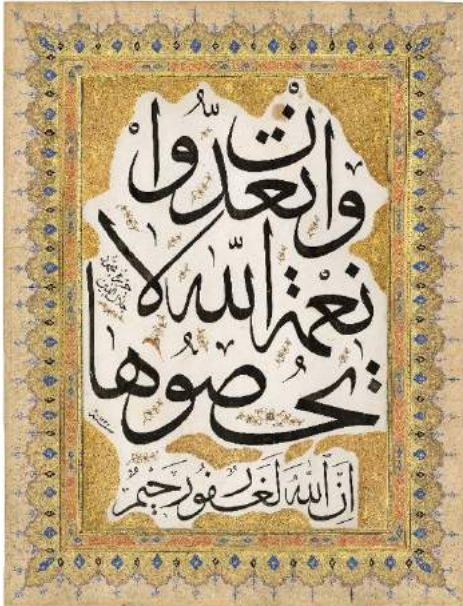 وان تعدوا
نعمة الله لا
تحصوها
ان الله لغفور رحيم